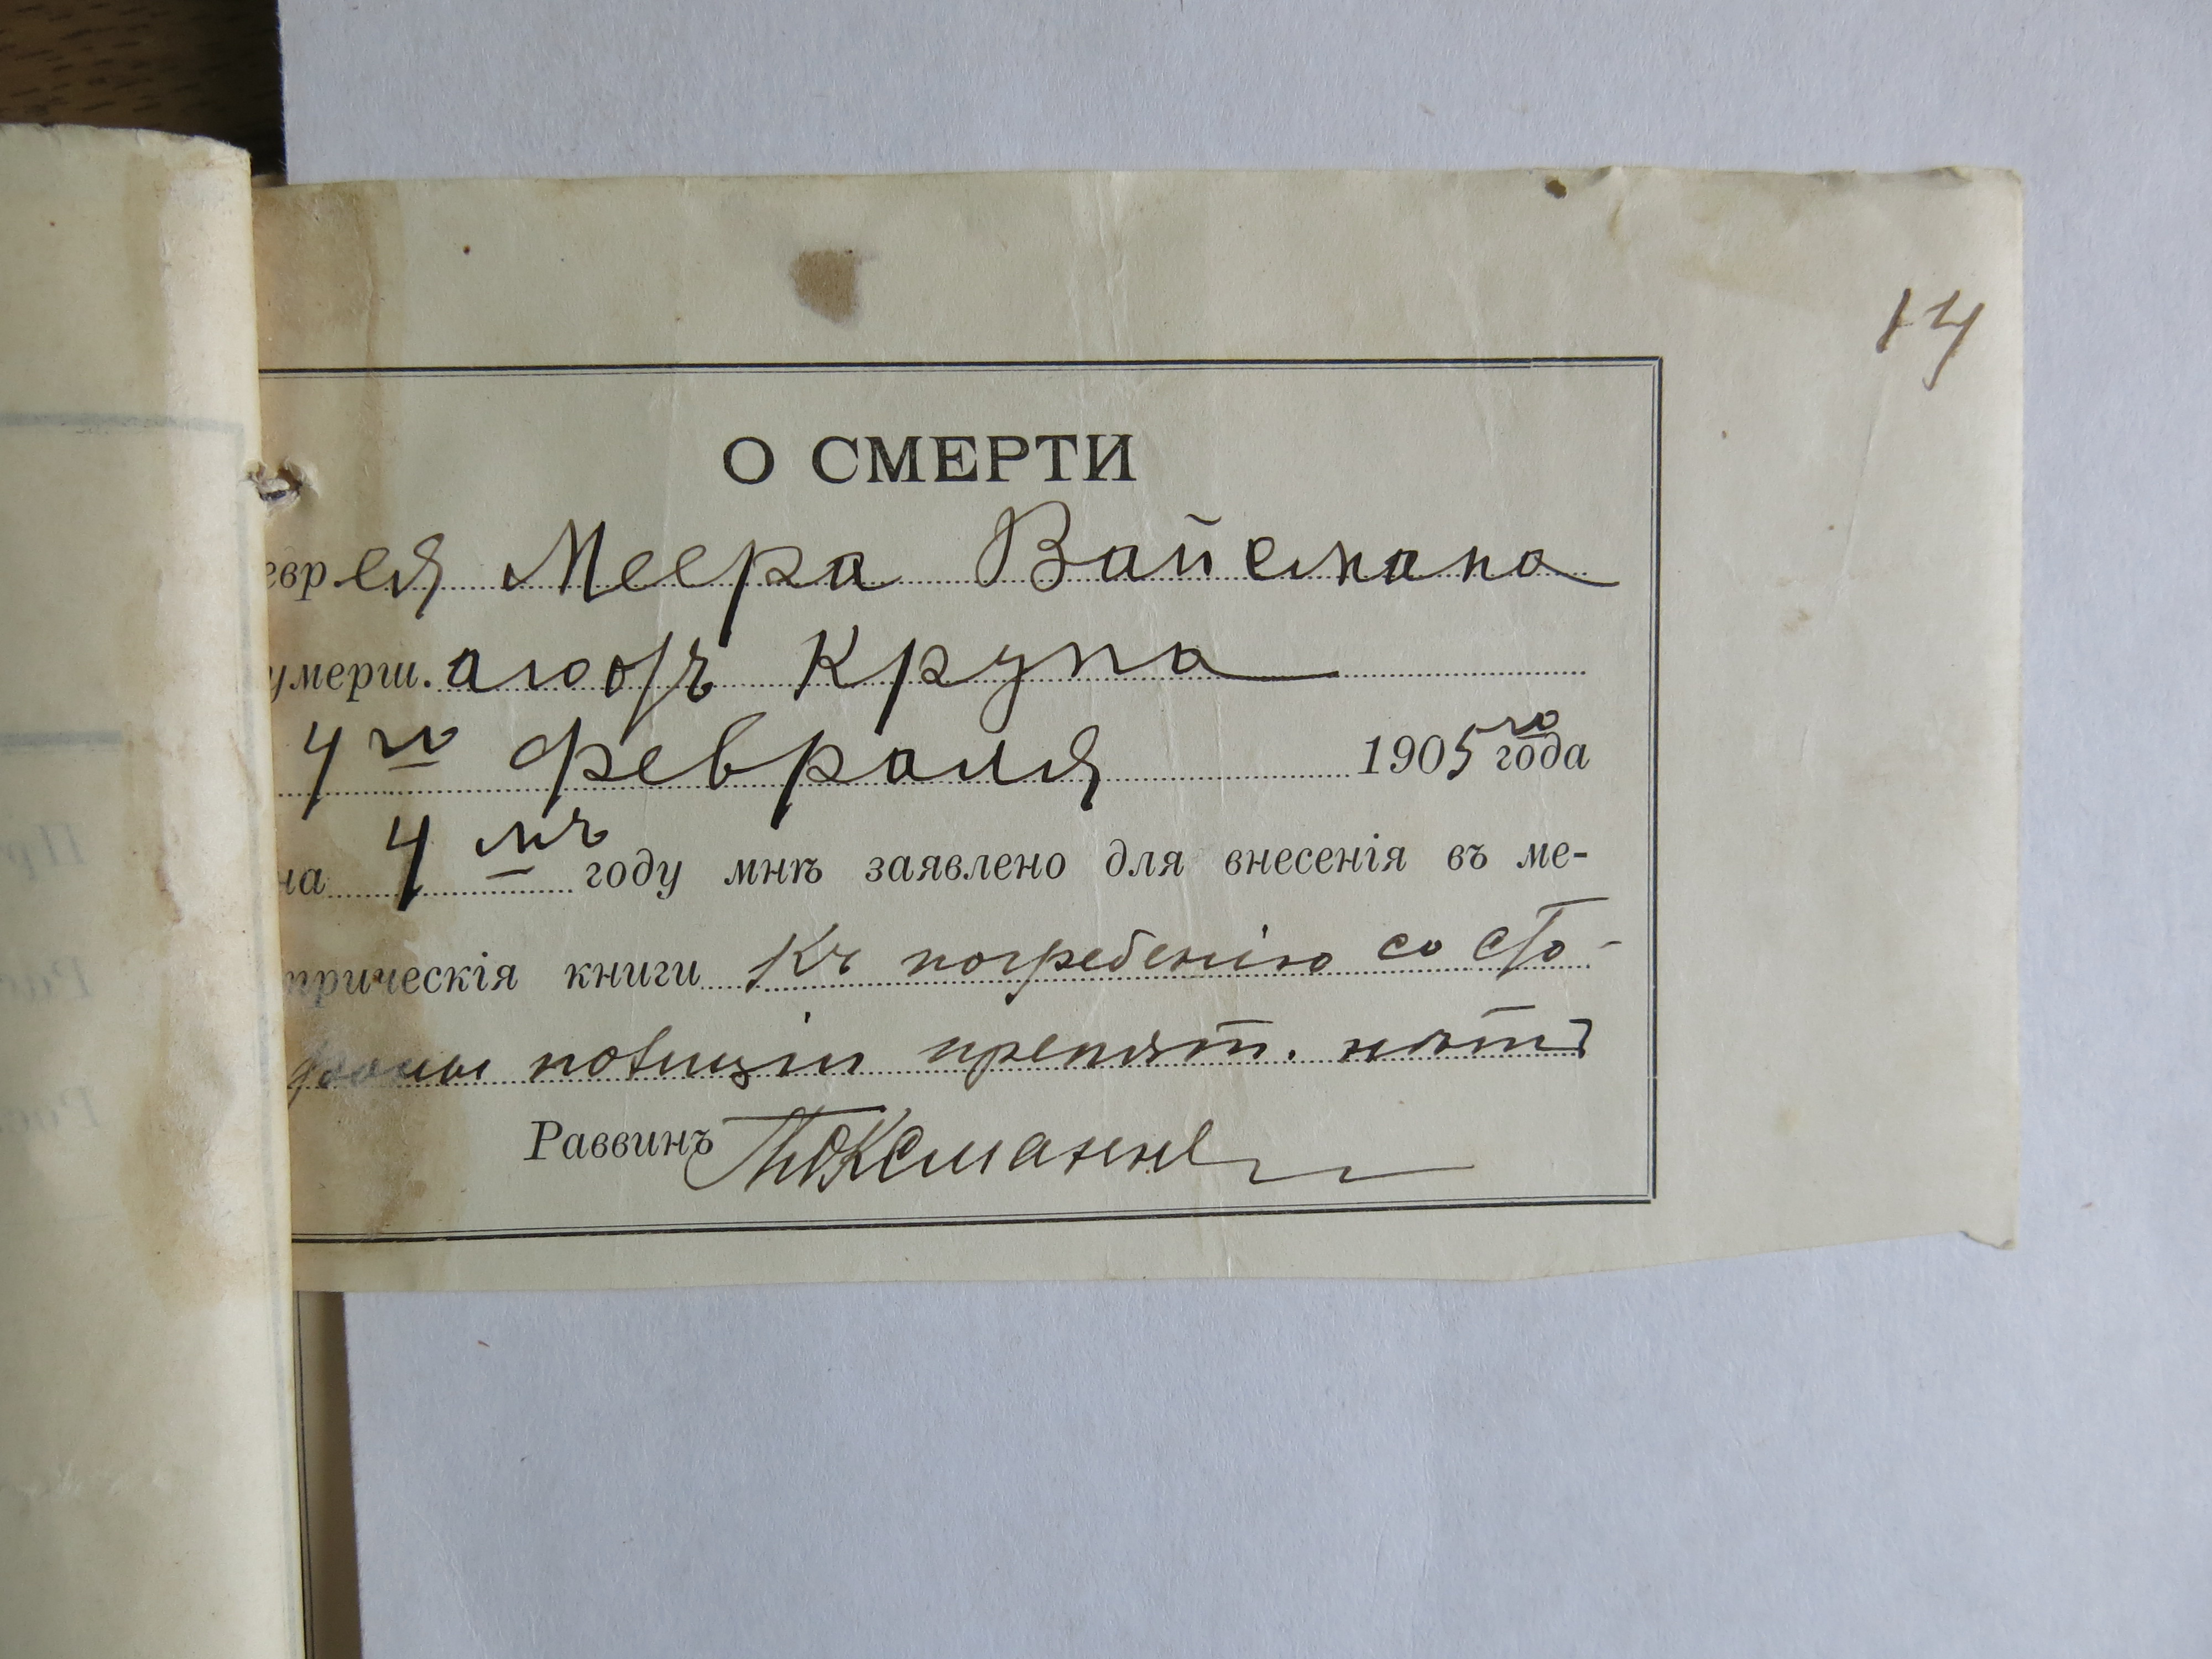 14
О СМЕРТИ
еврея Меера Вайсмана
умерш.аго отъ Крупа
4го февраля 1905го года
на 4мъ году мнѣ заявлено для внесенія въ ме-
трическія книги Къ погребенію со сто-
роны полиціи препят. нѣтъ
Раввинъ